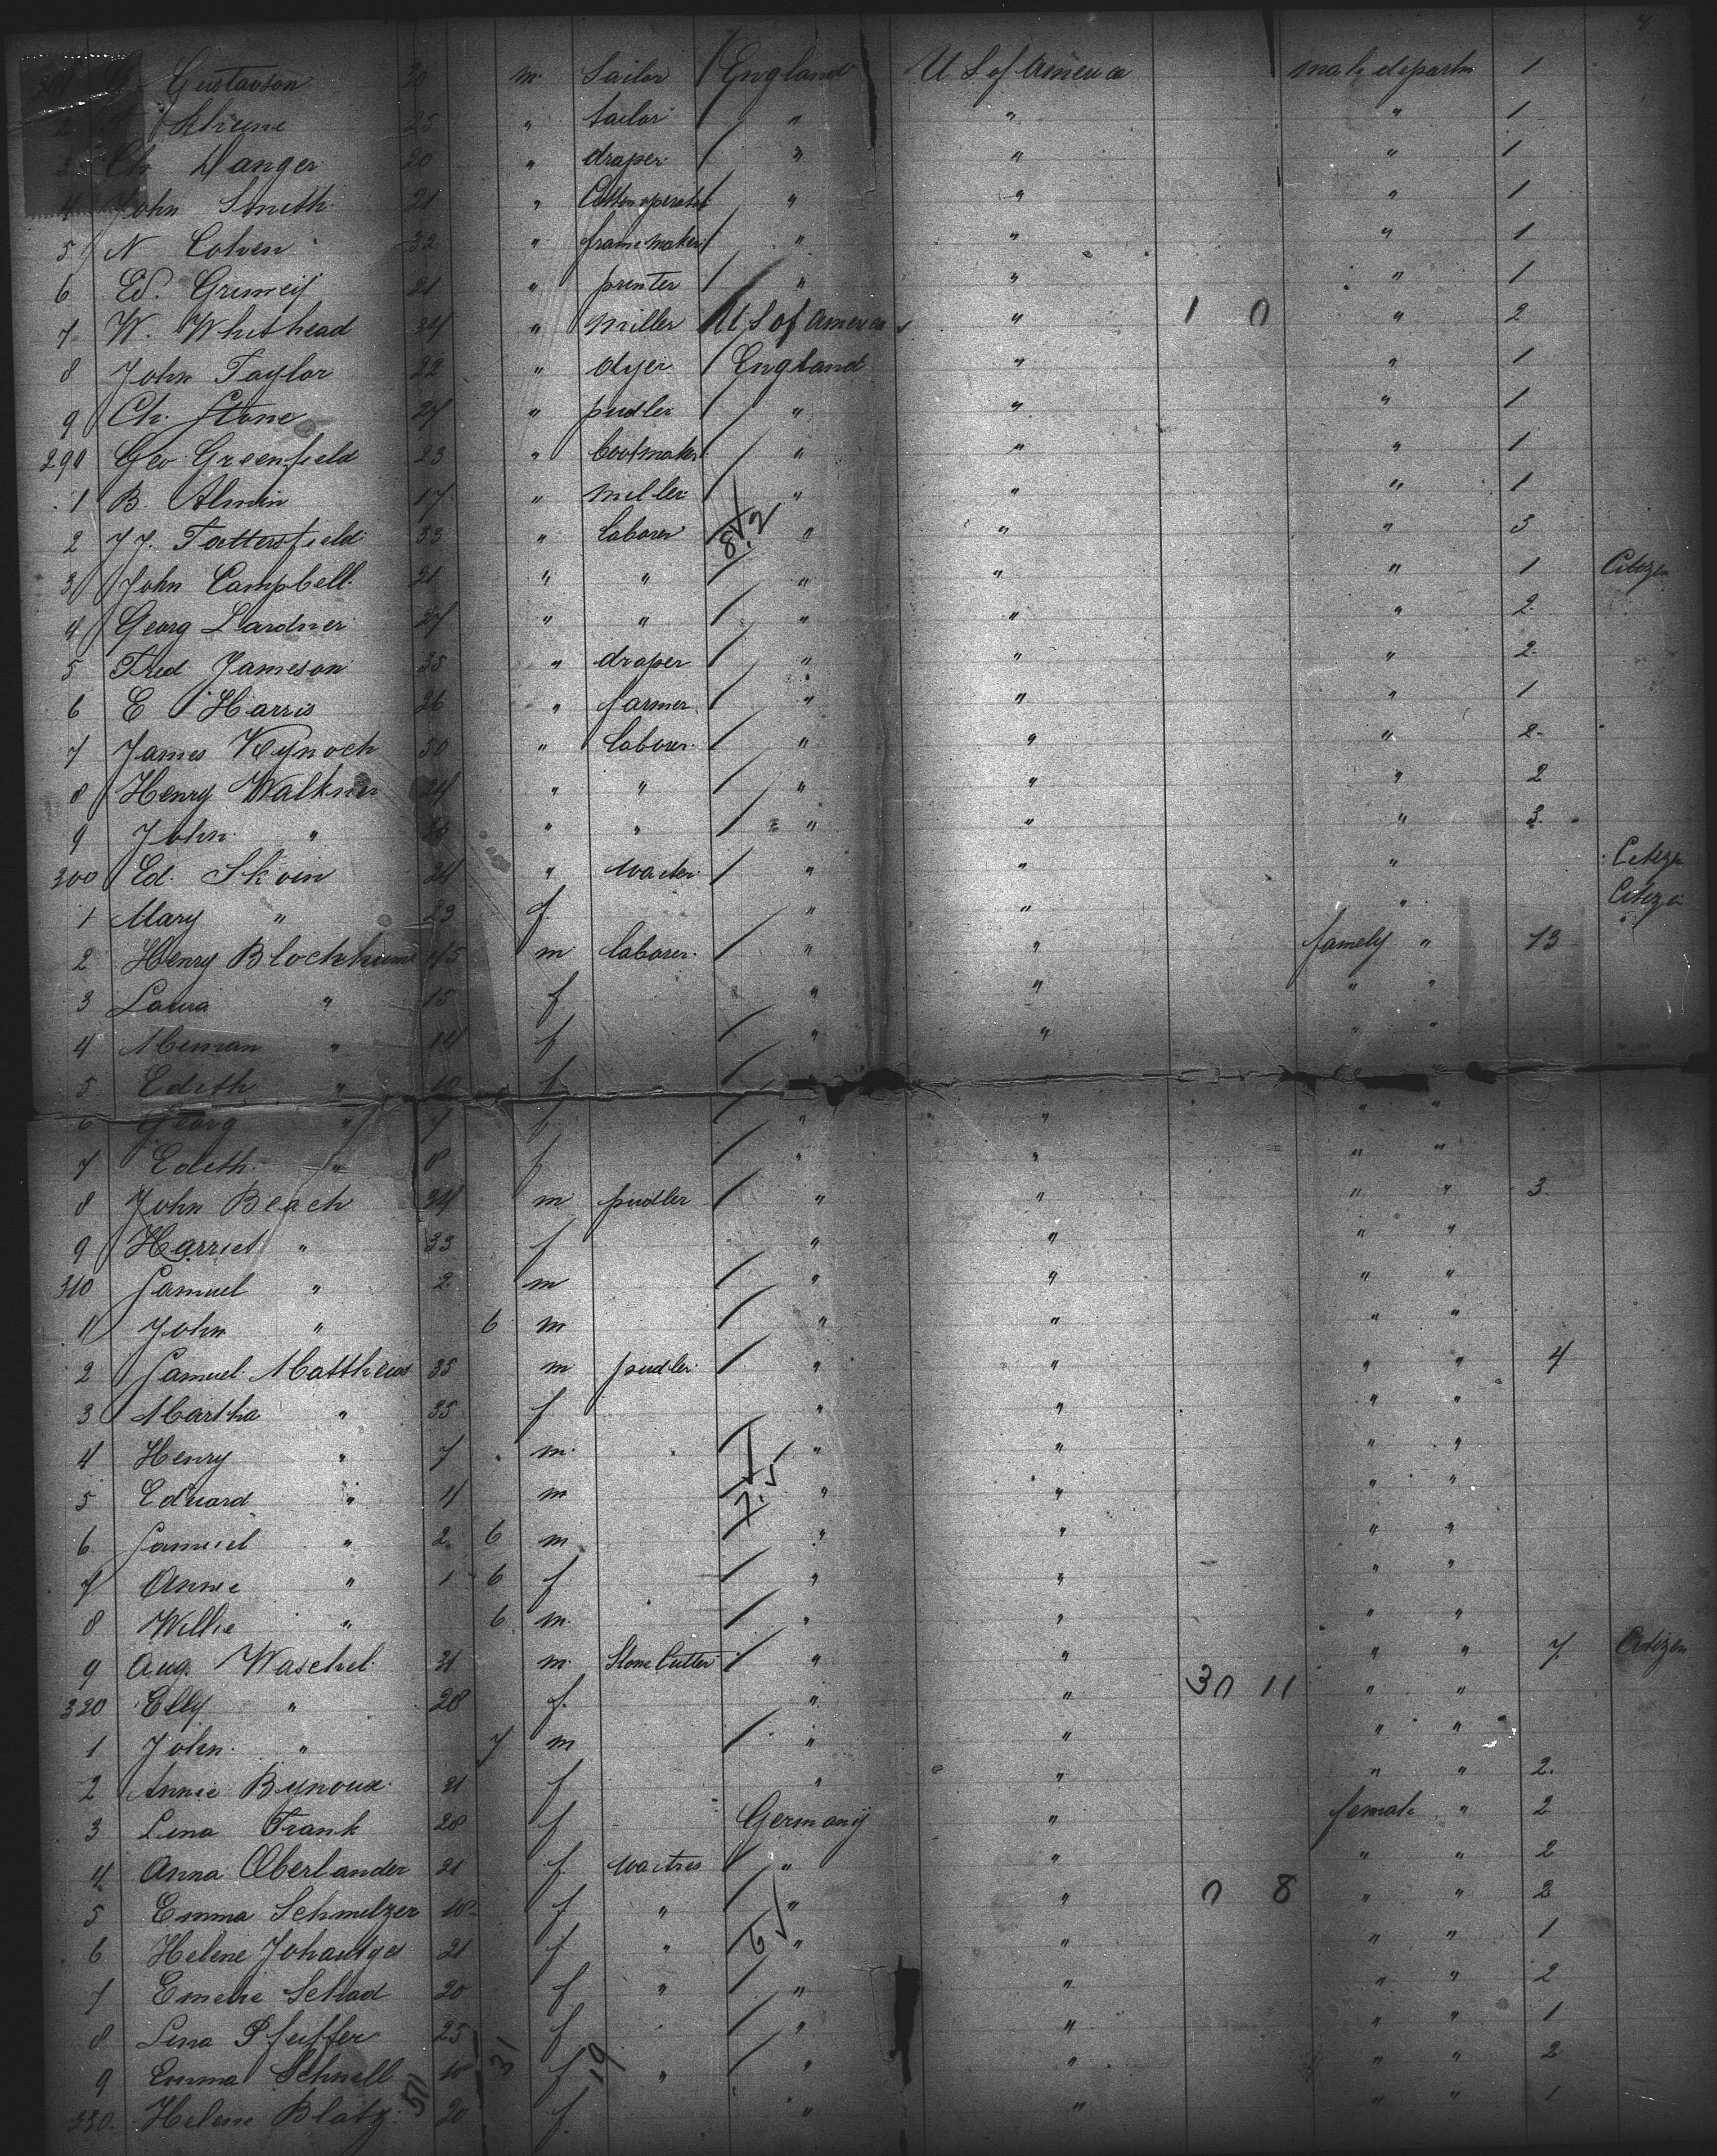 Gustavson 30 m. Sailor England U S of America male departm 1
2 25 " tailor " " " 1
3 Ch. Danger 20 " draper " " " 1
4 John Smith 21 " Cotton operator " " " 1
5 N Cohen 32 " frame maker " " " 1
6 Ed. 21 " printer " " " 1
7 W. Whithead 34 " miller U S of America " 1 0 " 2
8 John Taylor 22 " dyer England " " 1
9 Ch. Stone 27 " pudler " " " 1
290 Geo Greenfield 23 " bootmaker " " " 1
1 B. Almin 17 " miller " " " 1
2 J J. Tattersfield 33 " laborer 8.2 " " " 3
3 John Campbell 21 " " " " " 1 Citizen
4 Georg Lardner 27 " " " " " 2
5 Fred Jameson 35 " draper " " " 2
6 E Harris 26 " farmer " " " 1
7 James Kynoch 50 " laborer " " " 2
8 Henry Walkner 24 " " " " " 2
9 John " " " " " " 3
300 Ed. Skoin 24 " waiter " " " Citizen
1 Mary " 23 f. " " " Citizen
2 Henry 45 m laborer " " famely " 13
3 Laura " 15 f " " " "
4 " 14 f " " " "
5 Edith " 10 f "
6 Georg " 7 f " " " "
7 Edith " 8 f " " " "
8 John Beach 34 m pudler " " " " 3
9 Harriet " 33 f " " " "
310 Samuel " 2 m " " " "
1 John " 6 m " " " "
2 Samuel Matthews 35 m pudler " " " " 4
3 Martha " 35 f " " " "
4 Henry " 7 m " " " "
5 Eduard " 4 m 7.5 " " " "
6 Samuel " 2 6 m " " " "
7 Annie " 1 6 f " " " "
8 Willie " 6 m " " " "
9 Aug. Waschel 31 m. Stone Cutter " " " " 7 Citizen
320 Elly " 28 f. " " 30 11 " "
1 John " 7 m " " " "
2 Annie Bynoux 21 f " " " " 2.
3 Lina Frank 28 f Germany " female " 2
4 Anna Oberlander 21 f. waitres " " " " 2
5 Emma Schmelzer 18 f " " " 0 8 " " 2
6 Helene Johantges 21 f " 6 " " " " 1
7 Emelie Schad 20 f " " " " " 2
8 Lina Pfeiffer 25 f " " " " " 1
9 Emma Schnell 18 f " " " " " 2
330. Helene Blatz 20 f. " " " " 1
51 31 19